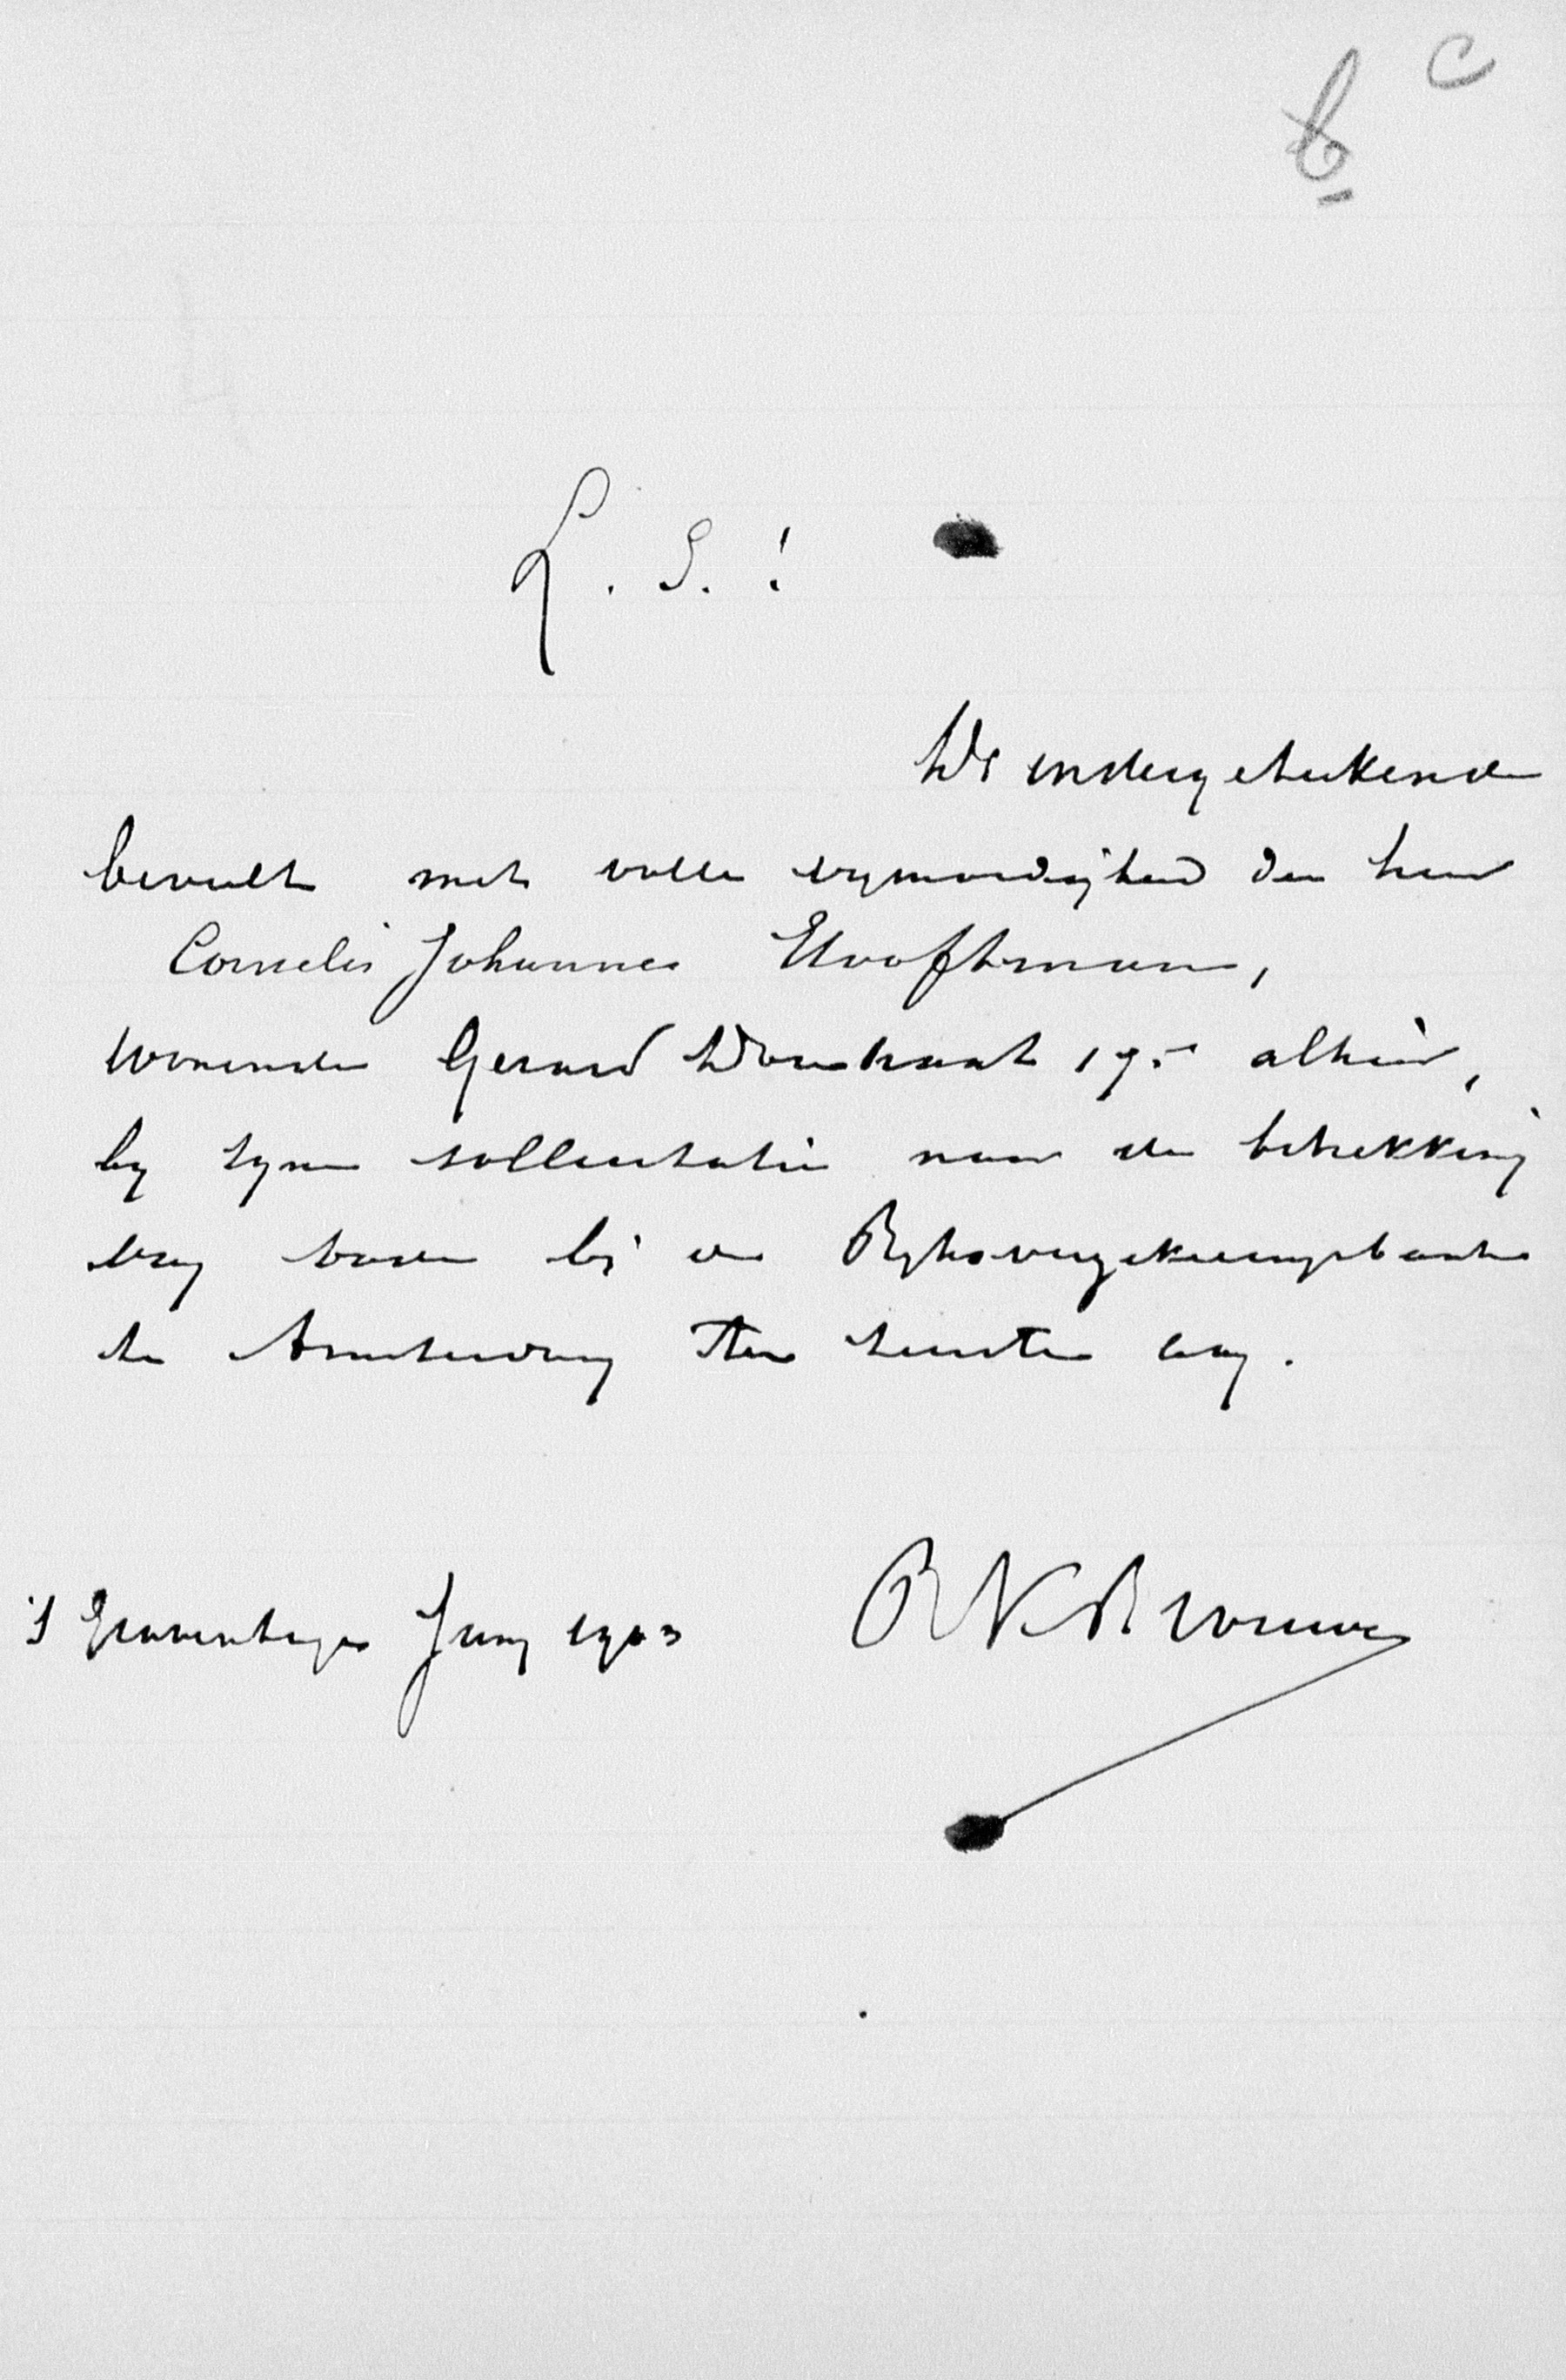 c
b
L. S.!
De ondergetekende
beveelt met volle vrijmoedigheid den heer
Cornelis Johannes
wonende Gerard Doustraat 195 alhier,
by zyne sollicitatie naar de betrekking
van bode bij de Ryksverzekeringsbank
te Amsterdam ten zeerste aan.
's Gravenhage Juny 1903